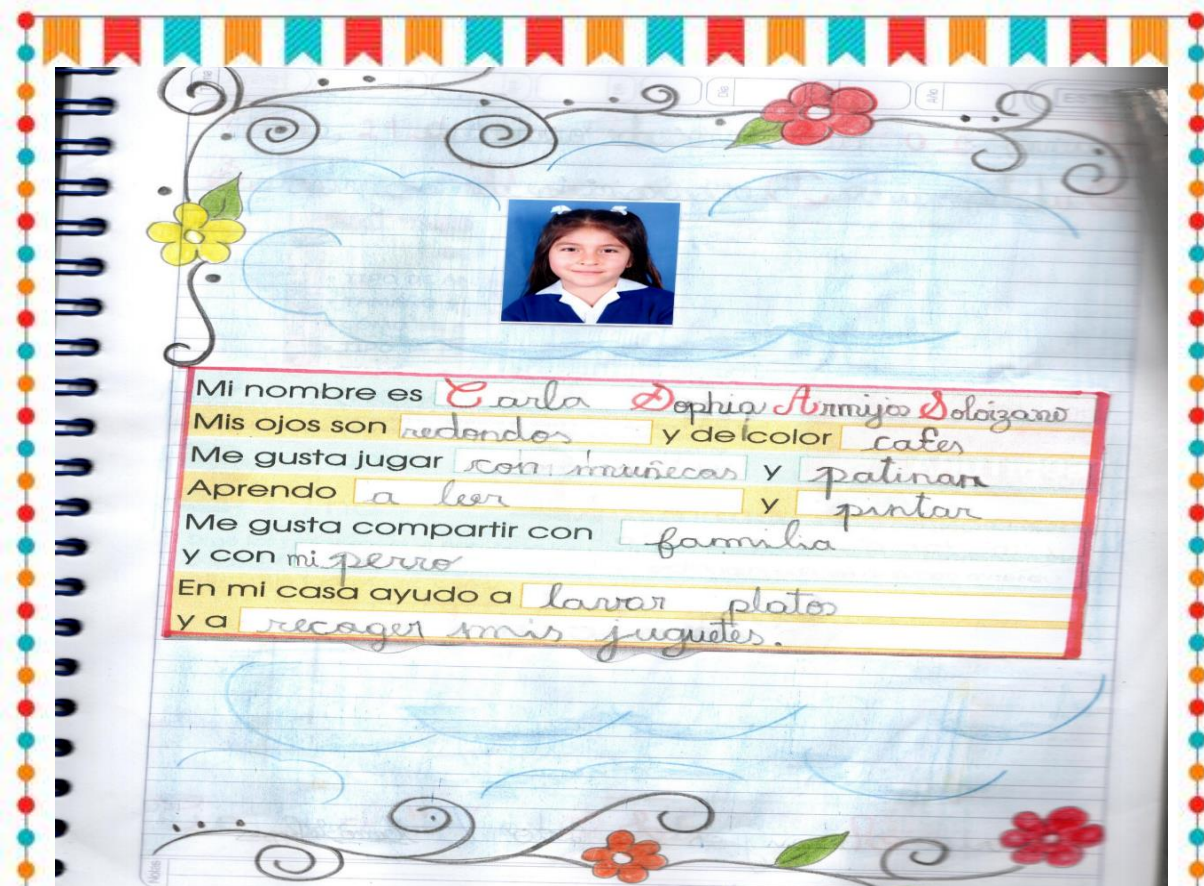 Mi nombre es Carla Sophia Armijos Solorzano
Mis ojos son redondos y de color cafes
Me gusta jugar con muñecas y patinar
Aprendo a leer y pintar
Me gusta compartir con familia
y con mi perro
En mi casa ayudo a lavar platos
y a recoger mis juguetes.